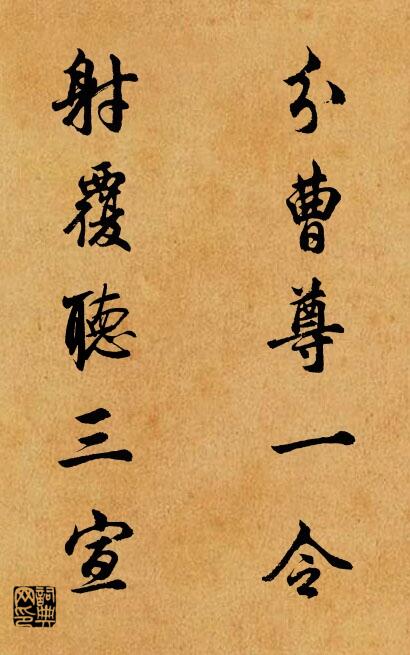 分曹尊一令
射覆聽三宣
詞典網印